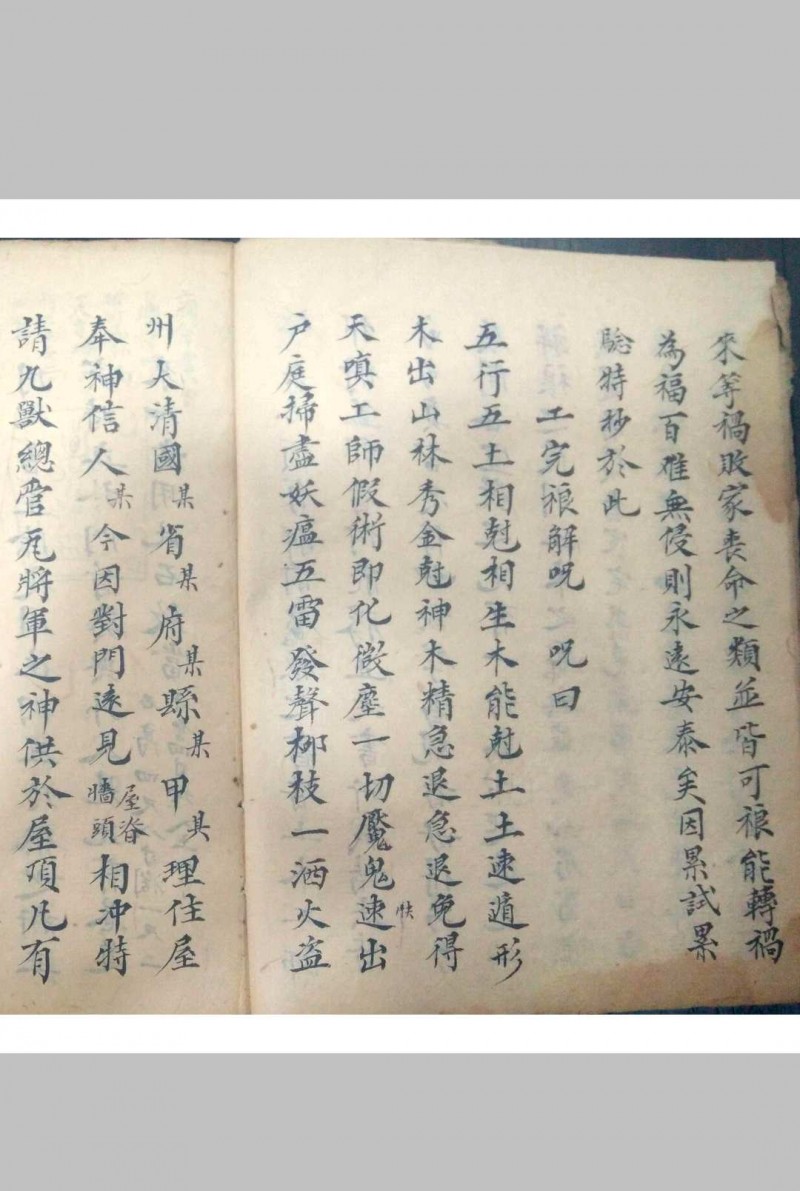 來等禍敗家喪命之類並皆可禳能轉禍
為福百難無侵則永遠安泰矣因累試累
驗特抄於此
工完禳解咒 咒曰
五行五土相尅相生木能尅土土速遁形
木出山林秀金尅神木精急退急退免得
天嗔工師假術即化微塵一切魘鬼速快出
户庭掃盡妖瘟五雷發聲柳枝一洒火盗
州大清國某省某府某縣某甲具理住屋
奉神信人某今因對門遠見屋脊牆頭相冲特
請九獸總管元將軍之神供於屋頂凡有